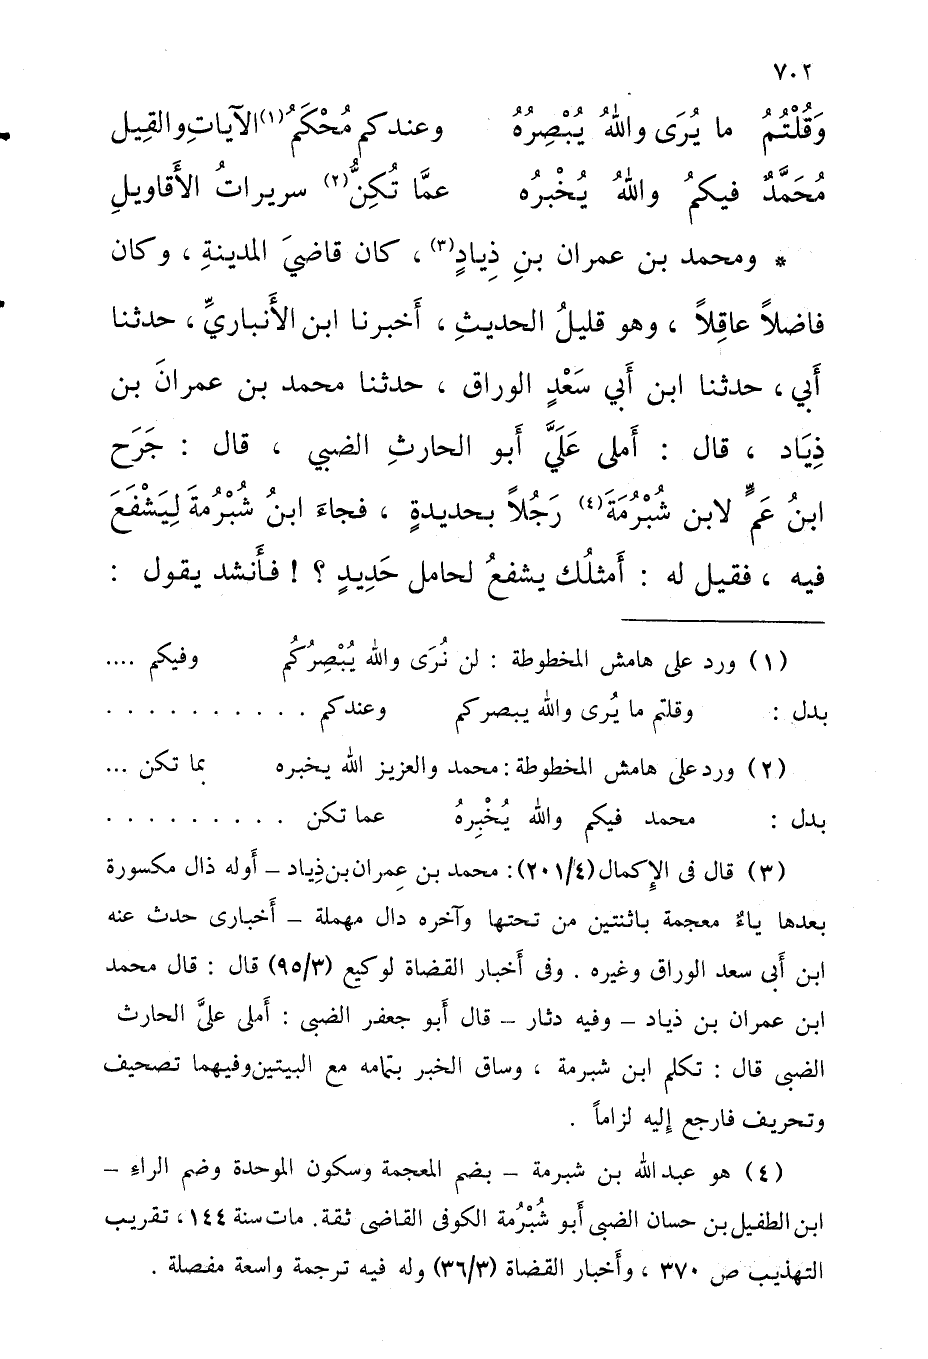 ٧٠٢
وَقُلْتُمُ ما يُرَى واللهُ يُبْصِرُهُ وعندكم مُحْكَمُ(١) الآياتِ والقِيل
مُحَمَّدٌ فيكمُ واللهُ يُخْبِره عمَّا تُكِنُّ(٢) سريراتُ الأَقاويلِ
* ومحمد بن عمران بنِ ذِيادٍ(٣) ، كان قاضيَ المدينةِ ، وكان
فاضلاً عاقِلاً ، وهو قليلُ الحديثِ ، أَخبرنا ابن الأَنباريِّ ، حدثنا
أَبي ، حدثنا ابن أَبي سَعْدٍ الوراق ، حدثنا محمد بن عمرانَ بن
ذِيَاد ، قال : أَملى عَلَيَّ أَبو الحارثِ الضبي ، قال : جَرَح
ابنُ عَمٍّ لابن شُبْرُمَةَ(٤) رَجُلاً بحديدةٍ ، فجاءَ ابنُ شُبْرُمةَ لِيَشْفَعَ
فيه ، فقيل له : أَمثلُك يشفعُ لحامل حَدِيدٍ ؟ ! فأَنشد يقول :
(١) ورد على هامش المخطوطة : لن نُرَى والله يُبْصِرُكُم وفيكم ....
بدل : وقلتم ما يُرى والله يبصركم وعندكم . . . . . . . . . .
(٢) ورد على هامش المخطوطة : محمد والعزيز الله يخبره بما تكن ...
بدل : محمد فيكم والله يُخْبِرهُ عما تكن . . . . . . . . .
(٣) قال فى الإِكمال (٢٠١/٤) : محمد بن عمران بن ذِياد – أَوله ذال مكسورة
بعدها ياءٌ معجمة باثنتين من تحتها وآخره دال مهملة – أَخبارى حدث عنه
ابن أَبى سعد الوراق وغيره . وفى أَخبار القضاة لوكيع (٩٥/٣) قال : قال محمد
ابن عمران بن ذياد – وفيه دثار – قال أَبو جعفر الضبى : أَملى علىَّ الحارث
الضبى قال : تكلم ابن شبرمة ، وساق الخبر بتمامه مع البيتين وفيهما تصحيف
وتحريف فارجع إِليه لزاماً .
(٤) هو عبد الله بن شبرمة – بضم المعجمة وسكون الموحدة وضم الراءِ –
ابن الطفيل بن حسان الضبى أَبو شُبْرُمة الكوفى القاضى ثقة. مات سنة ١٤٤ ، تقريب
التهذيب ص ٣٧٠ ، وأَخبار القضاة (٣٦/٣) وله فيه ترجمة واسعة مفصلة .